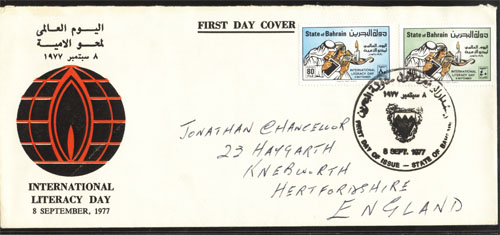 اليوم العالمى
لمحو الامية
٨ سبتمبر ١٩٧٧
INTERNATIONAL
LITERACY DAY
8 SEPTEMBER, 1977
FIRST DAY COVER
State of Bahrain دولة البحرين
اليوم العالمى
لمحو الامية
80
INTERNATIONAL
LITERACY DAY
8 SEPTEMBER
State of Bahrain دولة البحرين
اليوم العالمى
لمحو الامية
INTERNATIONAL
LITERACY DAY
8 SEPTEMBER
٨ سبتمبر ١٩٧٧
8 SEPT. 1977
FIRST DAY OF ISSUE - STATE OF
JONATHAN CHANCELLOR
23 HAYGARTH
KNEBWORTH
HERTFORDSHIRE
ENGLAND